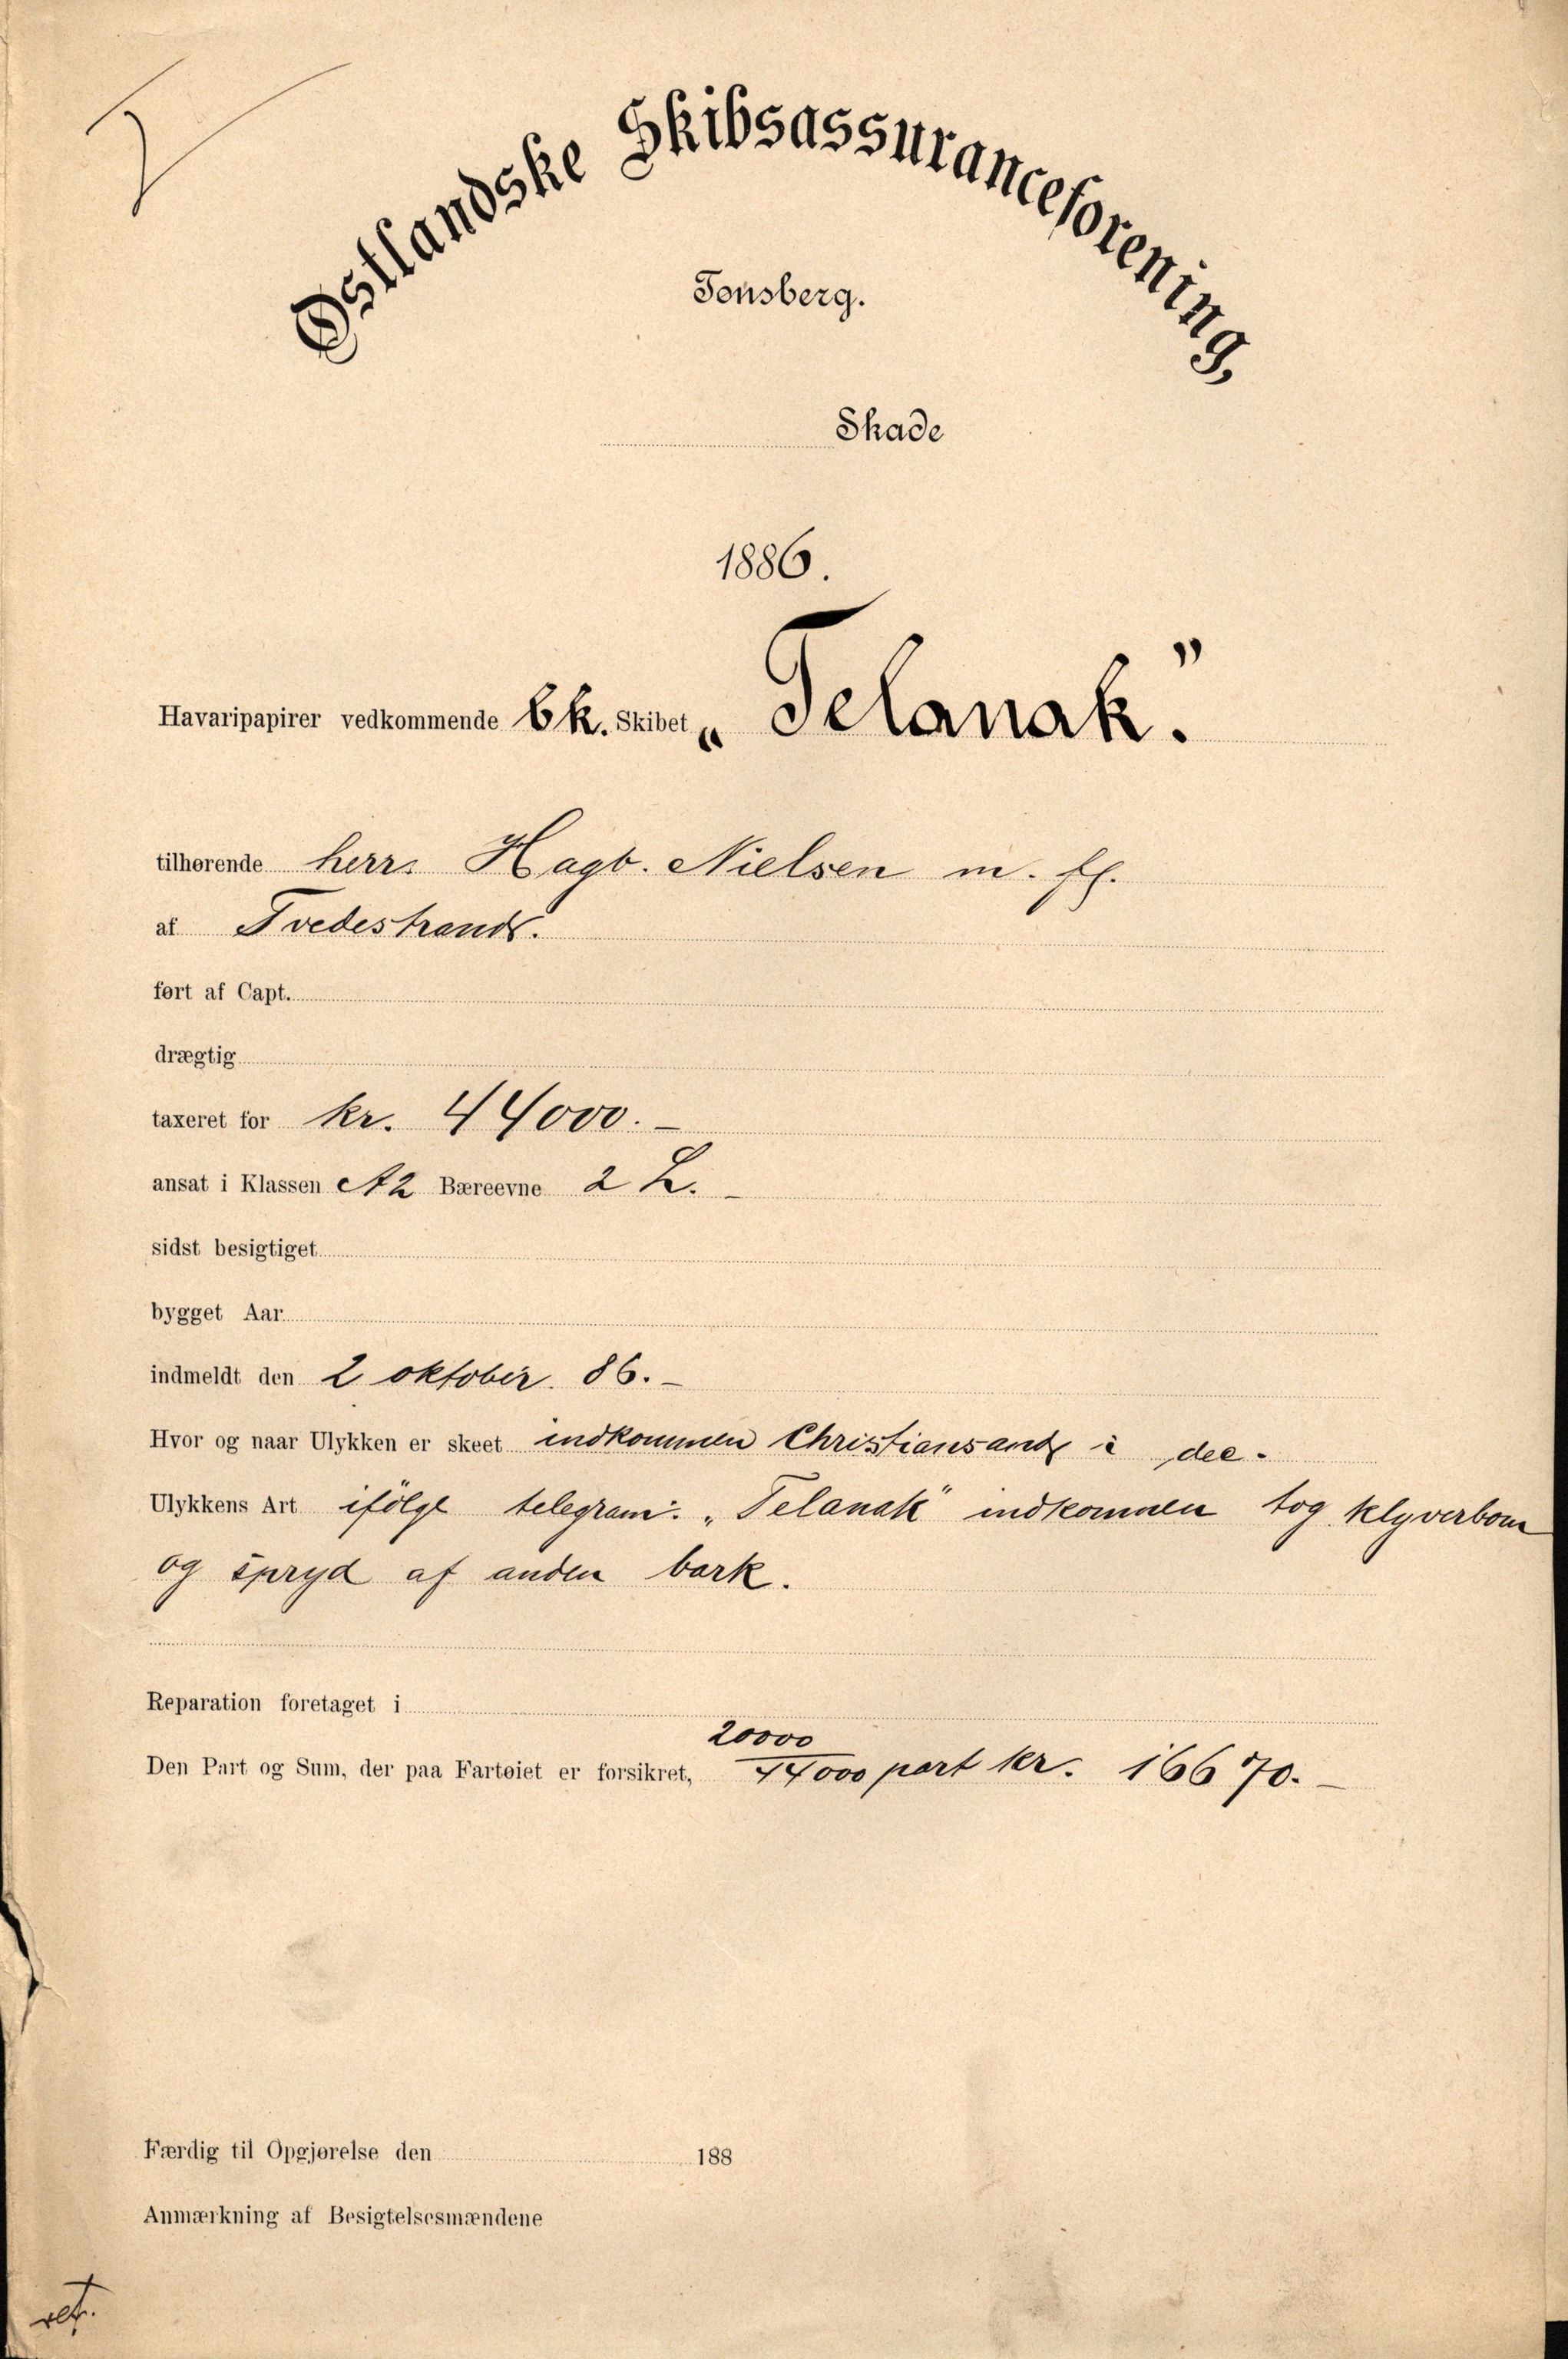 Østlandske Skibsassuranceforening,
Tønsberg.
Skade
1886.
Havaripapirer vedkommende Bk. Skibet „Telanak."
tilhørende herr. Hagb. Nielsen m. fl.
af Tvedestrand.
ført af Capt.
drægtig
taxeret for kr. 44000.-
ansat i Klassen A2 Bæreevne 2 L.-
sidst besigtiget
bygget Aar
indmeldt den 2 oktober. 86.-
Hvor og naar Ulykken er skeet indkommen Christiansand i dec.
Ulykkens Art ifölge telegram: „Telanak" indkommen tog klyverbom
og spryd af anden bark.
Reparation foretaget i
Den Part og Sum, der paa Fartøiet er forsikret, 20000/44000 part kr. 16670.-
Færdig til Opgjørelse den 188
Anmærkning af Besigtelsesmændene